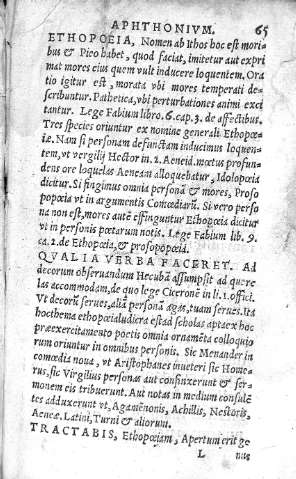 APHTHONIVM. 65
ETHOPOEIA, Nomen ab Ithos hoc est mori
bus & Pico habet, quod faciat, imitetur aut expri
mat mores eius quem vult inducere loquentem. Ora
tio igitur est, morata vbi mores temperati de-
scribuntur. Pathetica, vbi perturbationes animi exci
tantur. Lege Fabium libro. 6. cap. 3. de affectibus.
Tres species oriuntur ex nomine generali Ethopœ
iæ. Nam si personam defunctam inducimus loquen-
tem, vt vergilij Hector in 2. Aeneid. mœtus profun-
dens ore loquelas Aeneam alloquebatur, Idolopœia
dicitur. Si fingimus omnia personã & mores, Proso
popœia vt in argumentis Comœdiarũ. Si vero perso
na non est, mores autē effinguntur Ethopœia dicitur
vt in personis poetarum notis. Lege Fabium lib. 9.
ca. 2. de Ethopœia, & prosopopœia.
QVALIA VERBA FACERET. Ad
decorum obseruandum Hecubã assumpsit ad quere
las accommodam, de quo lege Ciceronē in li. 1. offici.
Vt decorũ serues, aliã personã agas, tuam serues. Ita
hocthema ethopœialudicra est ad scholas apta ex hoc
præexercitamento poetis omnia ornamēta colloquio
rum oriuntur in omnibus personis. Sic Menander in
comœdia noua, vt Aristophanes in veteri sic Home
rus, sic Virgilius personas aut confinxerunt & ser-
monem eis tribuerunt. Aut notas in medium consulē
tes adduxerunt vt, Agamēnonis, Achillis, Nestoris,
Aeneæ. Latini, Turni & aliorum.
TRACTABIS, Ethopœiam, Apertum erit ge
L nus